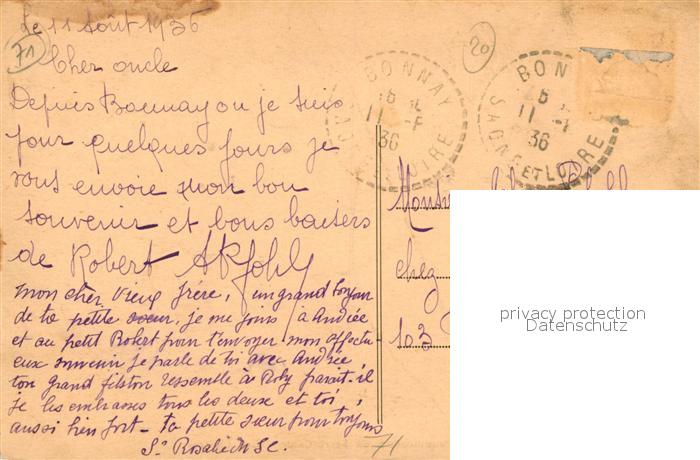 Le 11 Août 1936
71
20
Cher oncle
Depuis Bonnay ou je suis
pour quelques jours je
vous envoie mon bon
souvenir et bons baisers
de Robert
BONNAY
11
36
SAONE ET LOIRE
BON
11
36
SAONE ET LOIRE
chez
103
privacy protection
Datenschutz
mon cher vieux frère, un grand bonjour
de ta petite soeur, je me joins à Andrée
et au petit Robert pour t'envoyer mon affectu
eux souvenir je parle de toi avec Andrée
ton grand fiston ressemble à Roby parait-il
je les embrasses tous les deux et toi,
aussi bien fort - ta petite sœur pour toujours
Sr Rosalie
71